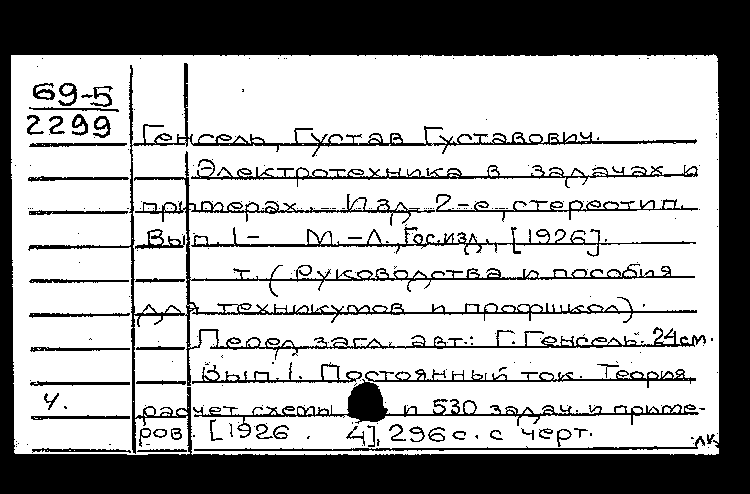 69-5
2299
Генсель, Густав Густавович.
Электротехника в задачах и
примерах. - Изд. 2-е, стереотип.
Вып. 1- М.-Л., Гос.изд., [1926].
т. (Руководства и пособия
для техникумов и профшкол).
Перед загл. авт.: Г. Генсель. 24 см.
Вып. 1. Постоянный ток. Теория,
ч. расчет, схемы и 530 задач и приме-
ров. [1926. 4], 296 с. с черт.
лк